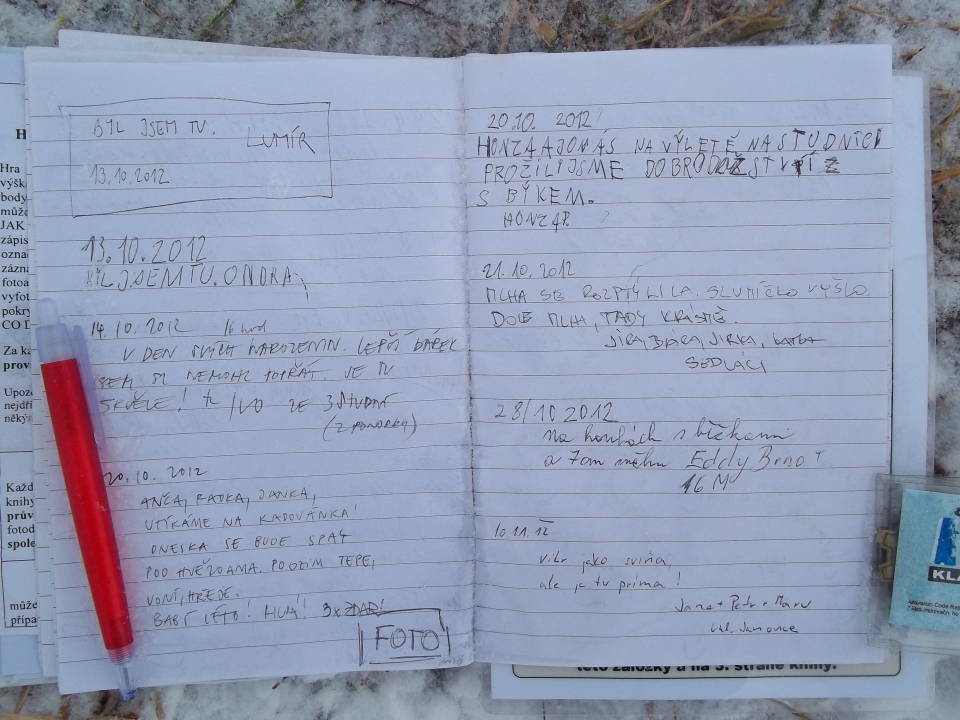 BYL JSEM TU.
LUMÍR
13.10.2012
13.10.2012
BYL JSEM TU. ONDRA
14.10. 2012 16 hod
V DEN SVÝCH NAROZENIN. LEPŠÍ DÁREK
JSEM SI NEMOHL POPŘÁT. JE TU
SKVĚLE! IVO ZE 3 STUDNÍ
(Z PONORKY)
20.10. 2012
ANČA, RADKA, JANKA,
UTÍKÁME NA KADOVÁNKA!
DNESKA SE BUDE SPÁT
POD HVĚZDAMA. PODZIM TEPE,
VONÍ, HŘEJE.
BABÍ LÉTO! HURÁ! 3x ZDAR!
FOTO
20.10. 2012
HONZA A JONÁS NA VÝLETĚ NA STUDNICI
PROŽILI JSME DOBRODRUŽSTVÍ
S BÝKEM.
HONZA P.
21.10. 2012
MLHA SE ROZPTÝLILA. SLUNÍČKO VYŠLO.
DOLE MLHA, TADY KRÁSNĚ.
JÍŘA, BÁRA, JIRKA,
SEDLÁCI
28/10 2012
na houbách s běžkami
a 7cm sněhu Eddy Brno
16 M
10 11. 12
vítr jako sviňa,
ale je tu príma!
Jana + Petr +
H
Hra
výšk
body
může
JAK
zápis
označ
zázna
fotoa
vyfot
pokry
CO D
Za ka
prov
Upozo
nejdří
někýn
Každ
knihy
prův
fotod
spole
může
připa
této záložky a na 3. straně knihy.
KLA